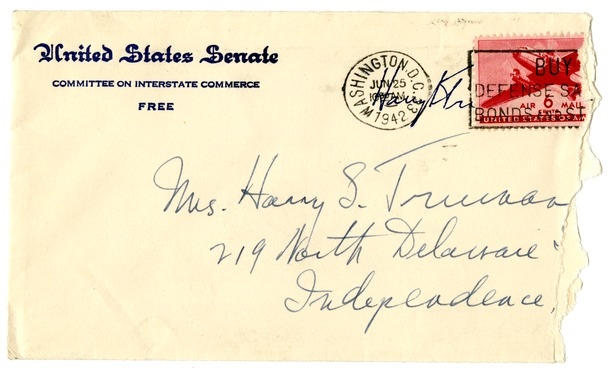 United States Senate
COMMITTEE ON INTERSTATE COMMERCE
FREE
WASHINGTON, D.C.
JUN 25
1942
BUY
DEFENSE SA
BONDS
AIR 6 MAIL
UNITED STATES OF AM
Harry
Mrs. Harry S. Truman
219 North Delaware
Independence,